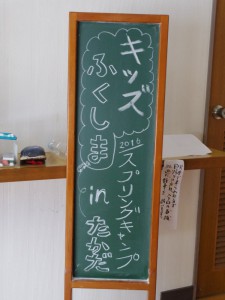 キッズ
ふくしま
2016
スプリングキャンプ
in たかだ